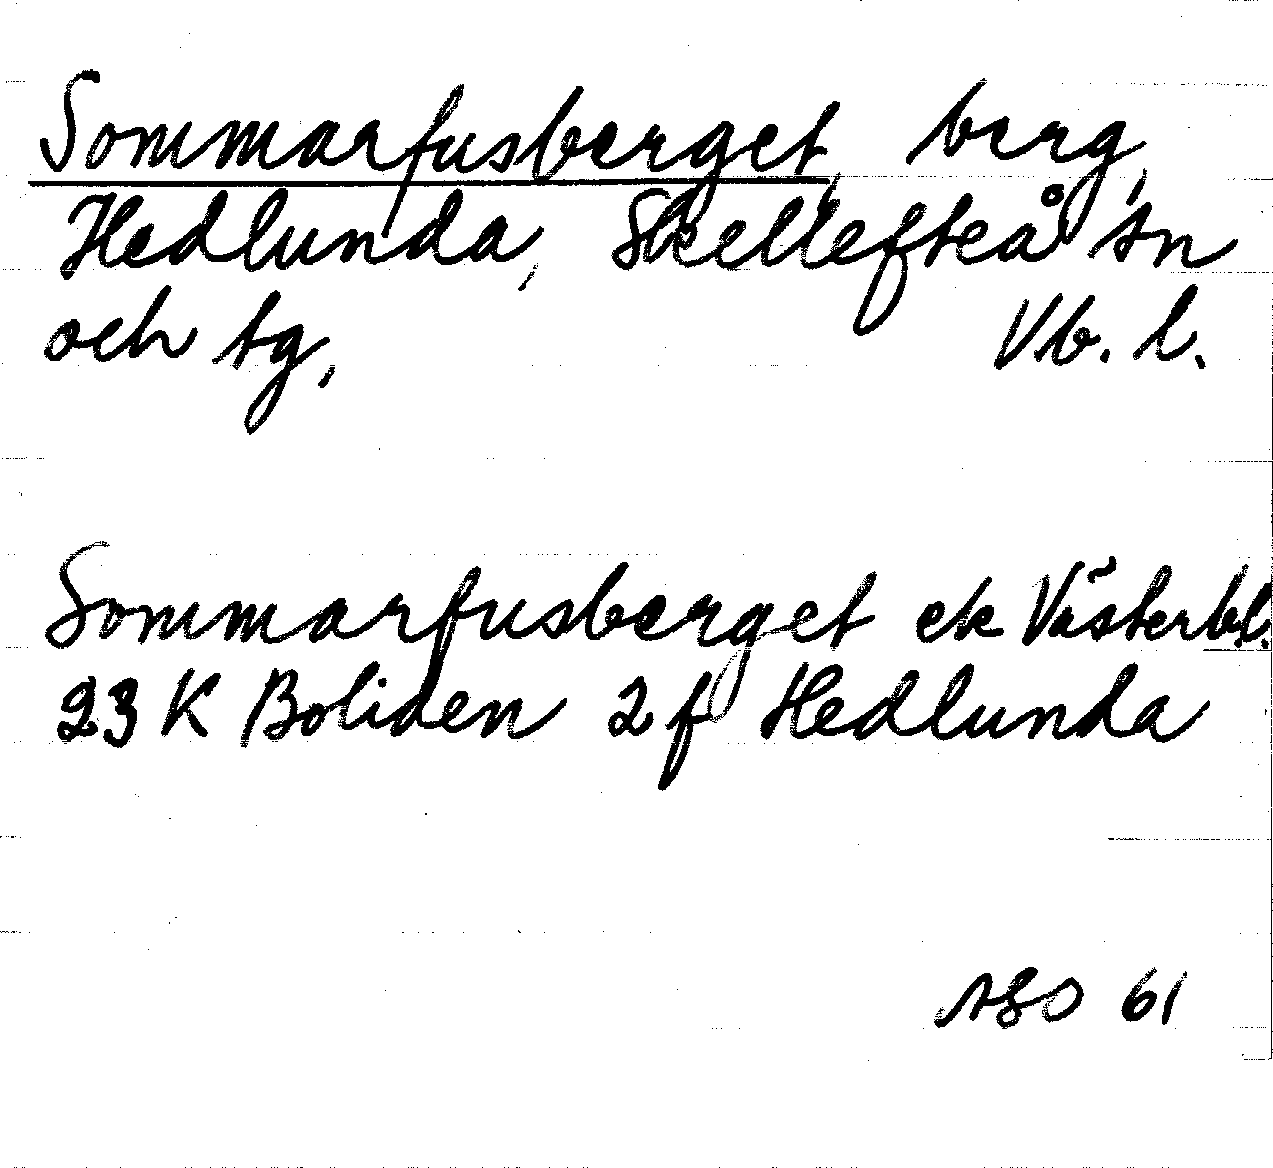 Sommarfusberget, berg,
Hedlunda, Skellefteå sn
och tg, Vb. l.
Sommarfusberget ek Västerbl.
23 K Boliden 2 f Hedlunda
61